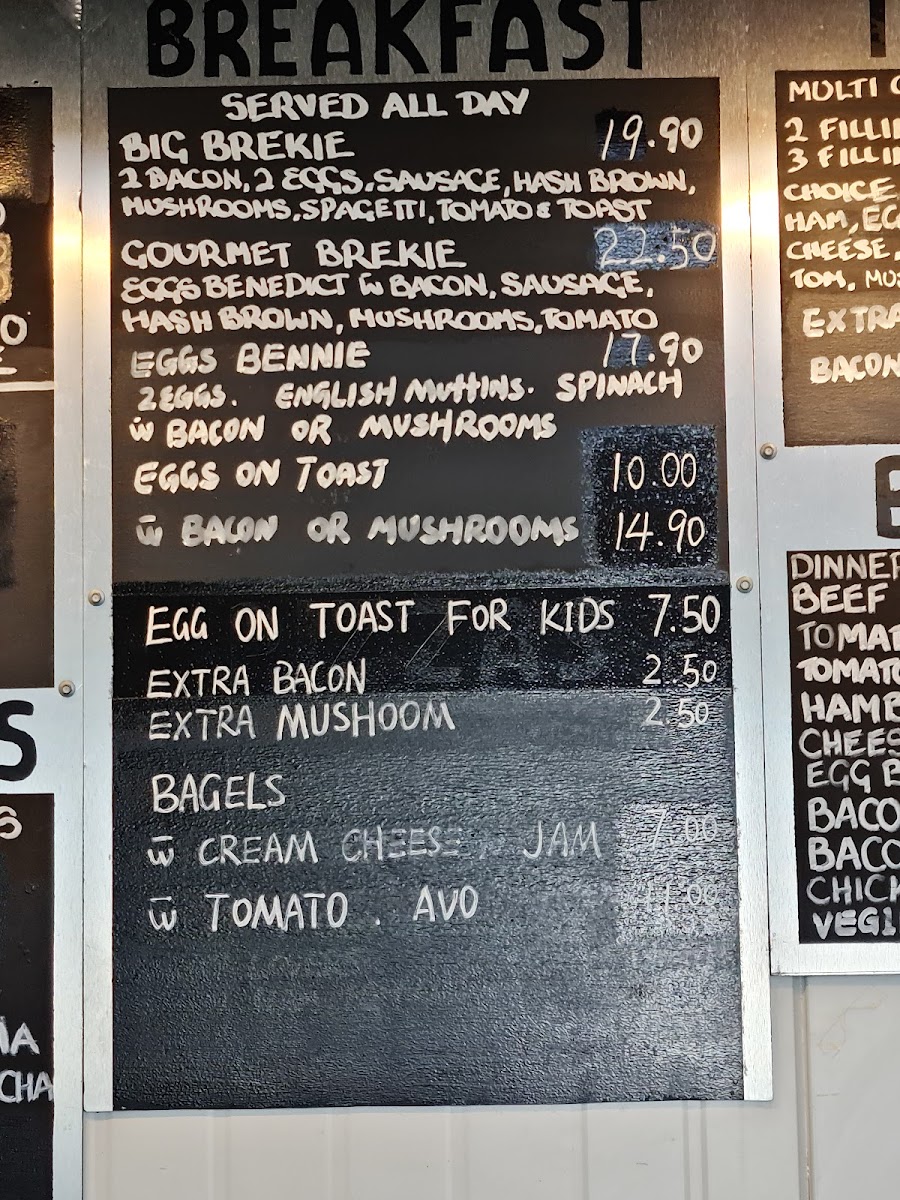 BREAKFAST
SERVED ALL DAY
BIG BREKIE 19.90
2 BACON, 2 EGGS, SAUSAGE, HASH BROWN,
MUSHROOMS, SPAGETTI, TOMATO & TOAST
GOURMET BREKIE 22.50
EGGS BENEDICT W BACON, SAUSAGE,
HASH BROWN, MUSHROOMS, TOMATO
EGGS BENNIE 17.90
2 EGGS. ENGLISH MUFFINS. SPINACH
W BACON OR MUSHROOMS
EGGS ON TOAST 10.00
W BACON OR MUSHROOMS 14.90
EGG ON TOAST FOR KIDS 7.50
EXTRA BACON 2.50
EXTRA MUSHOOM 2.50
BAGELS
W CREAM CHEESE, JAM 7.00
W TOMATO . AVO 11.00
MULTI
2 FILLI
3 FILLI
CHOICE
HAM, EG
CHEESE,
TOM, MUS
EXTRA
BACON
DINNER
BEEF
TOMAT
TOMATO
HAMB
CHEES
EGG B
BACO
BACO
CHICK
VEGI
S
IA
CHA